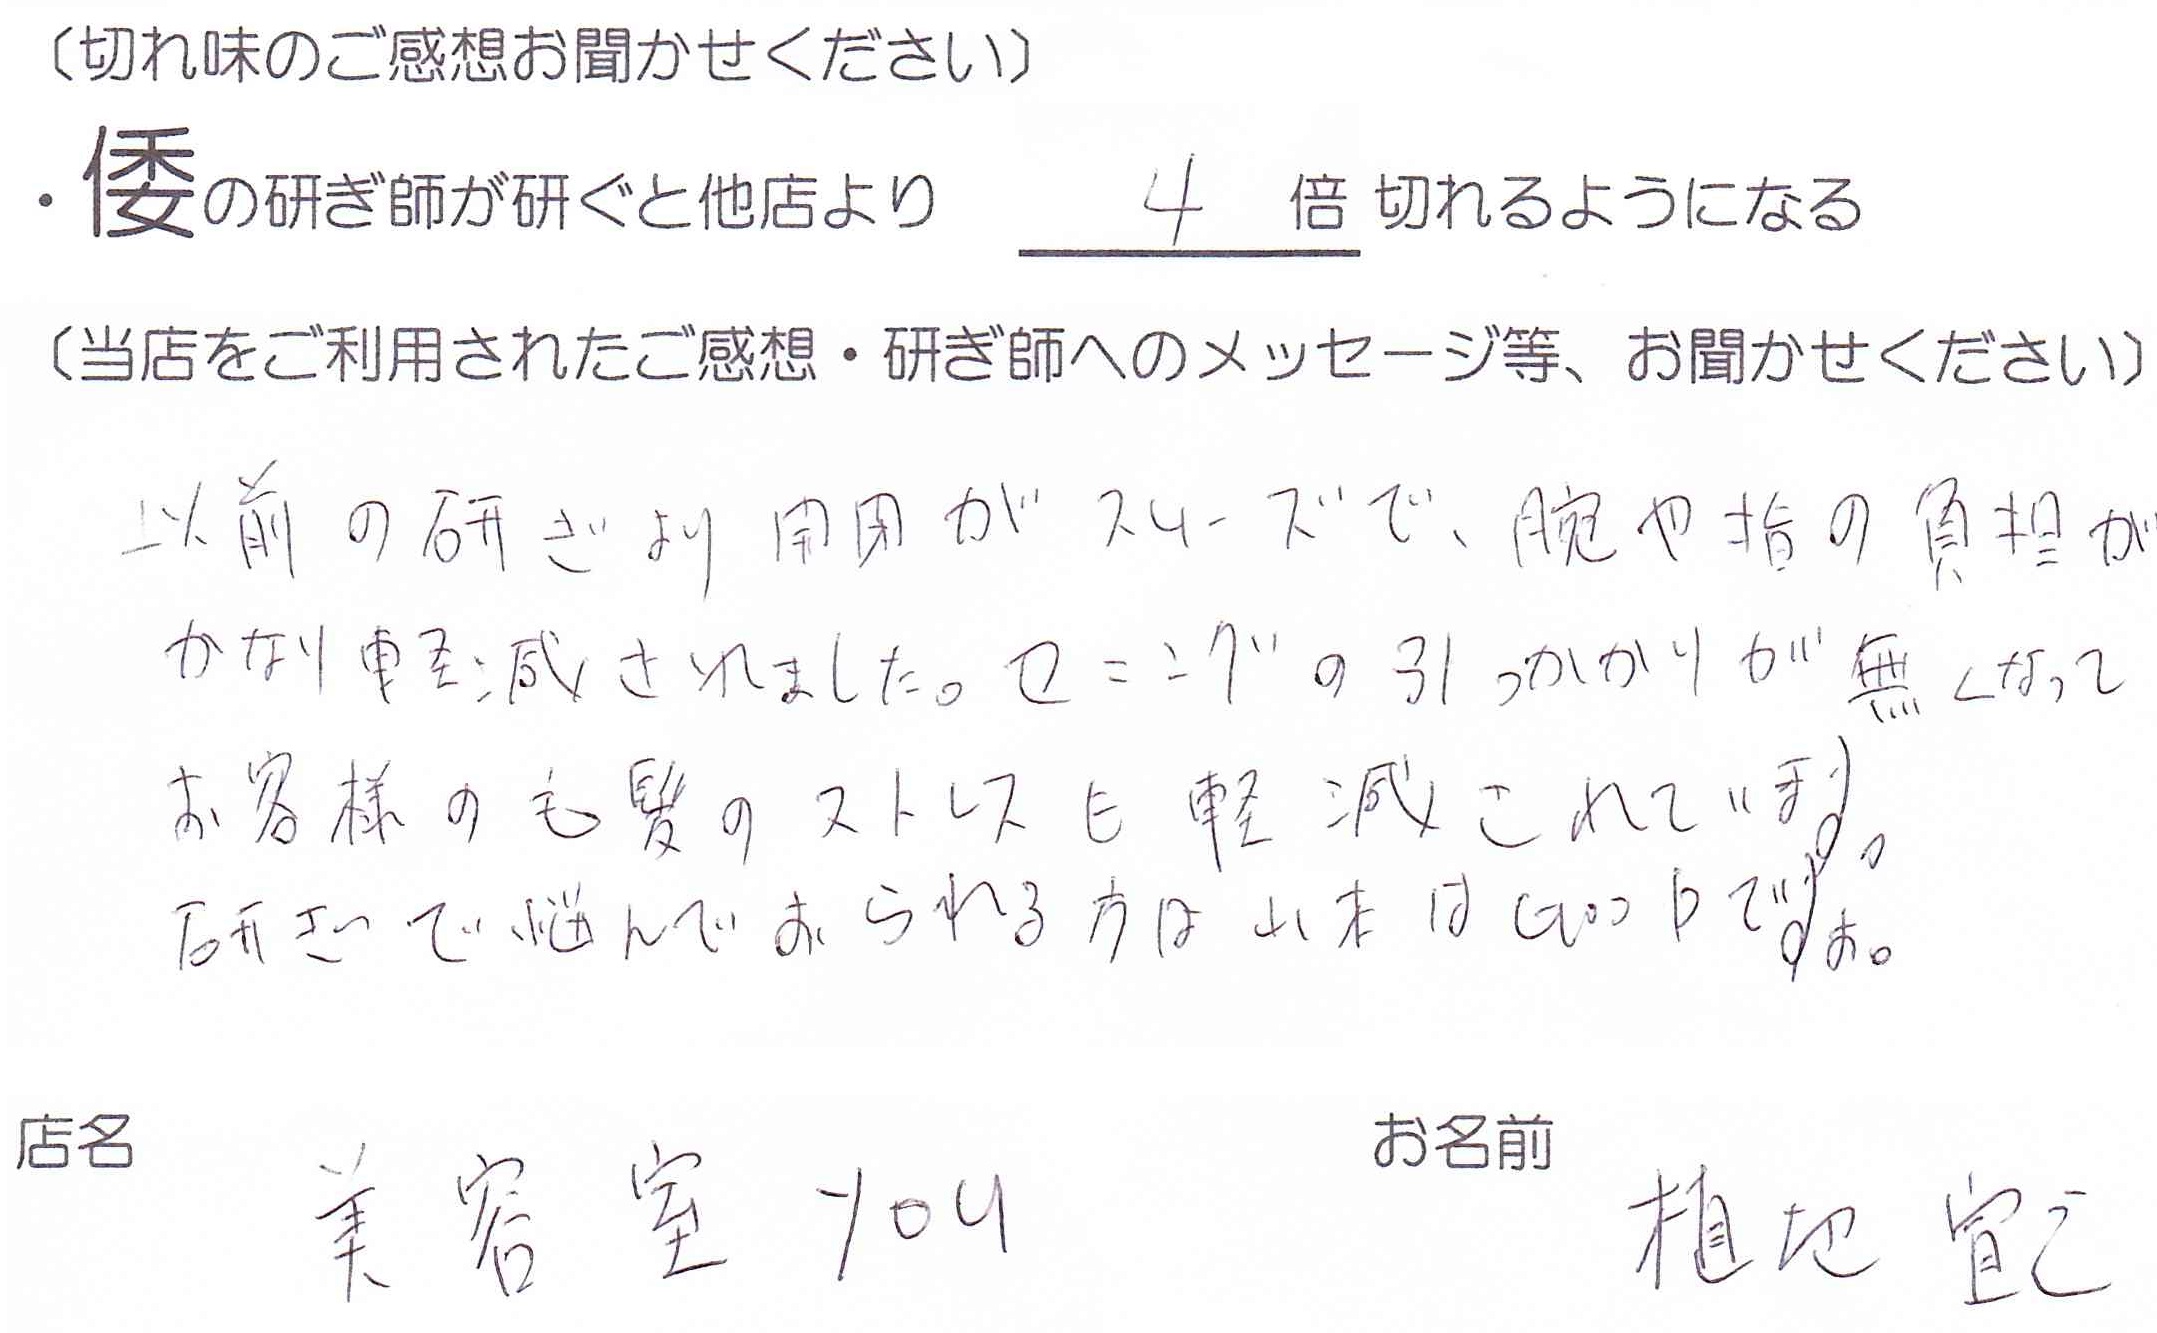 （切れ味のご感想お聞かせください）
・倭の研ぎ師が研ぐと他店より 4 倍 切れるようになる
（当店をご利用されたご感想・研ぎ師へのメッセージ等、お聞かせください）
以前の研ぎより開閉がスムーズで、腕や指の負担が
かなり軽減されました。セニングの引っかかりが無くなって
お客様の毛髪のストレスも軽減されています。
研ぎで悩んでおられる方は山本はGooDですよ。
店名 美容室 YOU お名前 植地 宣